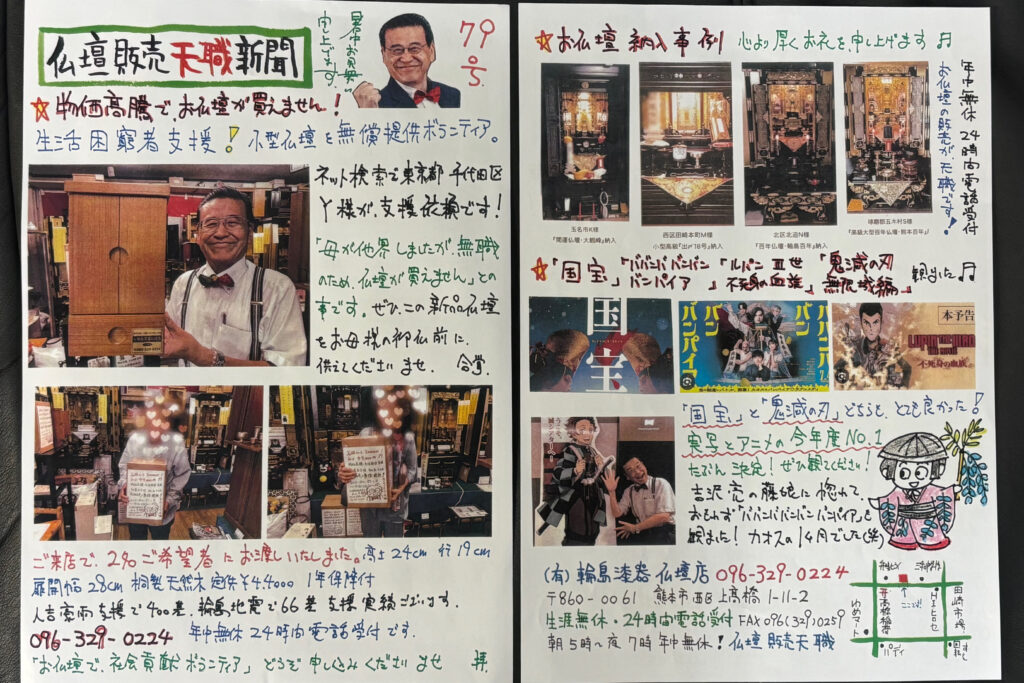 仏壇販売天職新聞
暑中お見舞い
申し上げます。
79
☆物価高騰で、お仏壇が買えません！
生活困窮者支援！小型仏壇を無償提供ボランティア。
ネット検索で東京都千代田区
Y様が、支援依頼です！
「母が他界しましたが、無職
のため、仏壇が買えません」との
事です。ぜひ、この新品仏壇
をお母様の御仏前に、
供えてくださいませ。合掌
ご来店で、2名ご希望者にお渡しいたしました。高さ24cm 行19cm
扉開幅28cm 桐製天然木 定価￥44000 1年保障付
人吉豪雨支援で400基、輪島地震で66基 支援実績ございます。
096-329-0224 年中無休24時間電話受付です。
「お仏壇で、社会貢献ボランティア」どうぞ申し込みくださいませ 拝
☆お仏壇納入事例 心より厚くお礼を申し上げます♬
年中無休 24時間電話受付
お仏壇の販売が天職です！
玉名市K様
『開運仏壇・大鶴峰』納入
西区田崎本町M様
小型高級『出汐18号』納入
北区北迫N様
『百年仏壇・輪島百年』納入
球磨郡五木村S様
『高級大型百年仏壇・熊本百年』
☆「国宝」「ババンババンバン バンパイア」「ルパン三世 不死身の血族」「鬼滅の刃 無限城編」観ました♬
国宝
ババンババンバンバンパイア
本予告
LUPIN THE IIIRD
THE MOVIE
不死身の血族
「国宝」と「鬼滅の刃」どちらも、とても良かった！
実写とアニメの今年度NO.1
たぶん決定！ぜひ観てください！
吉沢亮の藤娘に惚れて、
おもわず「ババンババンバンバンパイア」も
観ました！カオスの1ヶ月でした(笑)
(有)輪島漆器仏壇店 096-329-0224
〒860-0061 熊本市西区上高橋1-11-2
生涯無休・24時間電話受付 FAX 096(329)0259
朝5時〜夜7時 年中無休！仏壇販売天職
ここです！
田崎市場
ゆめマート